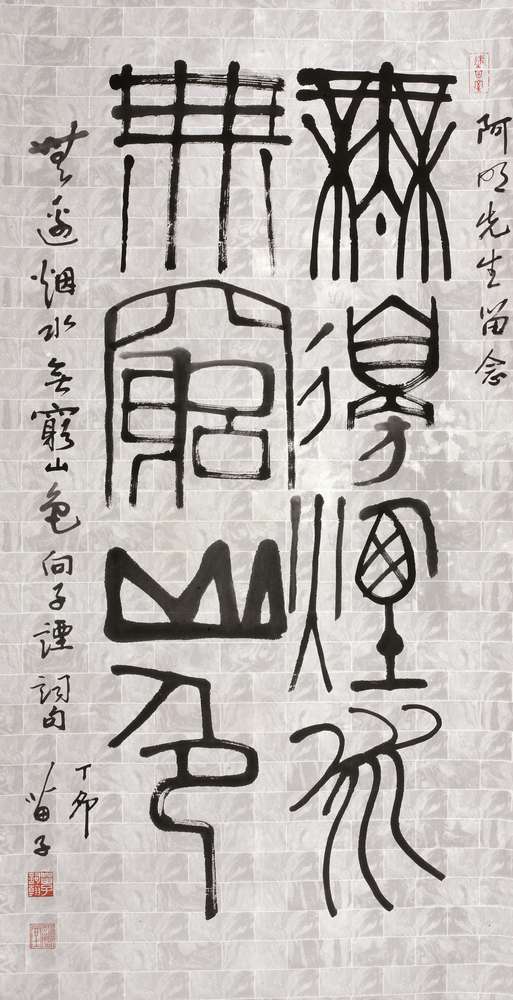 阿明先生留念
無邊煙水
無窮山色
無邊烟水無窮山色向子諲詞句
丁卯
苗子